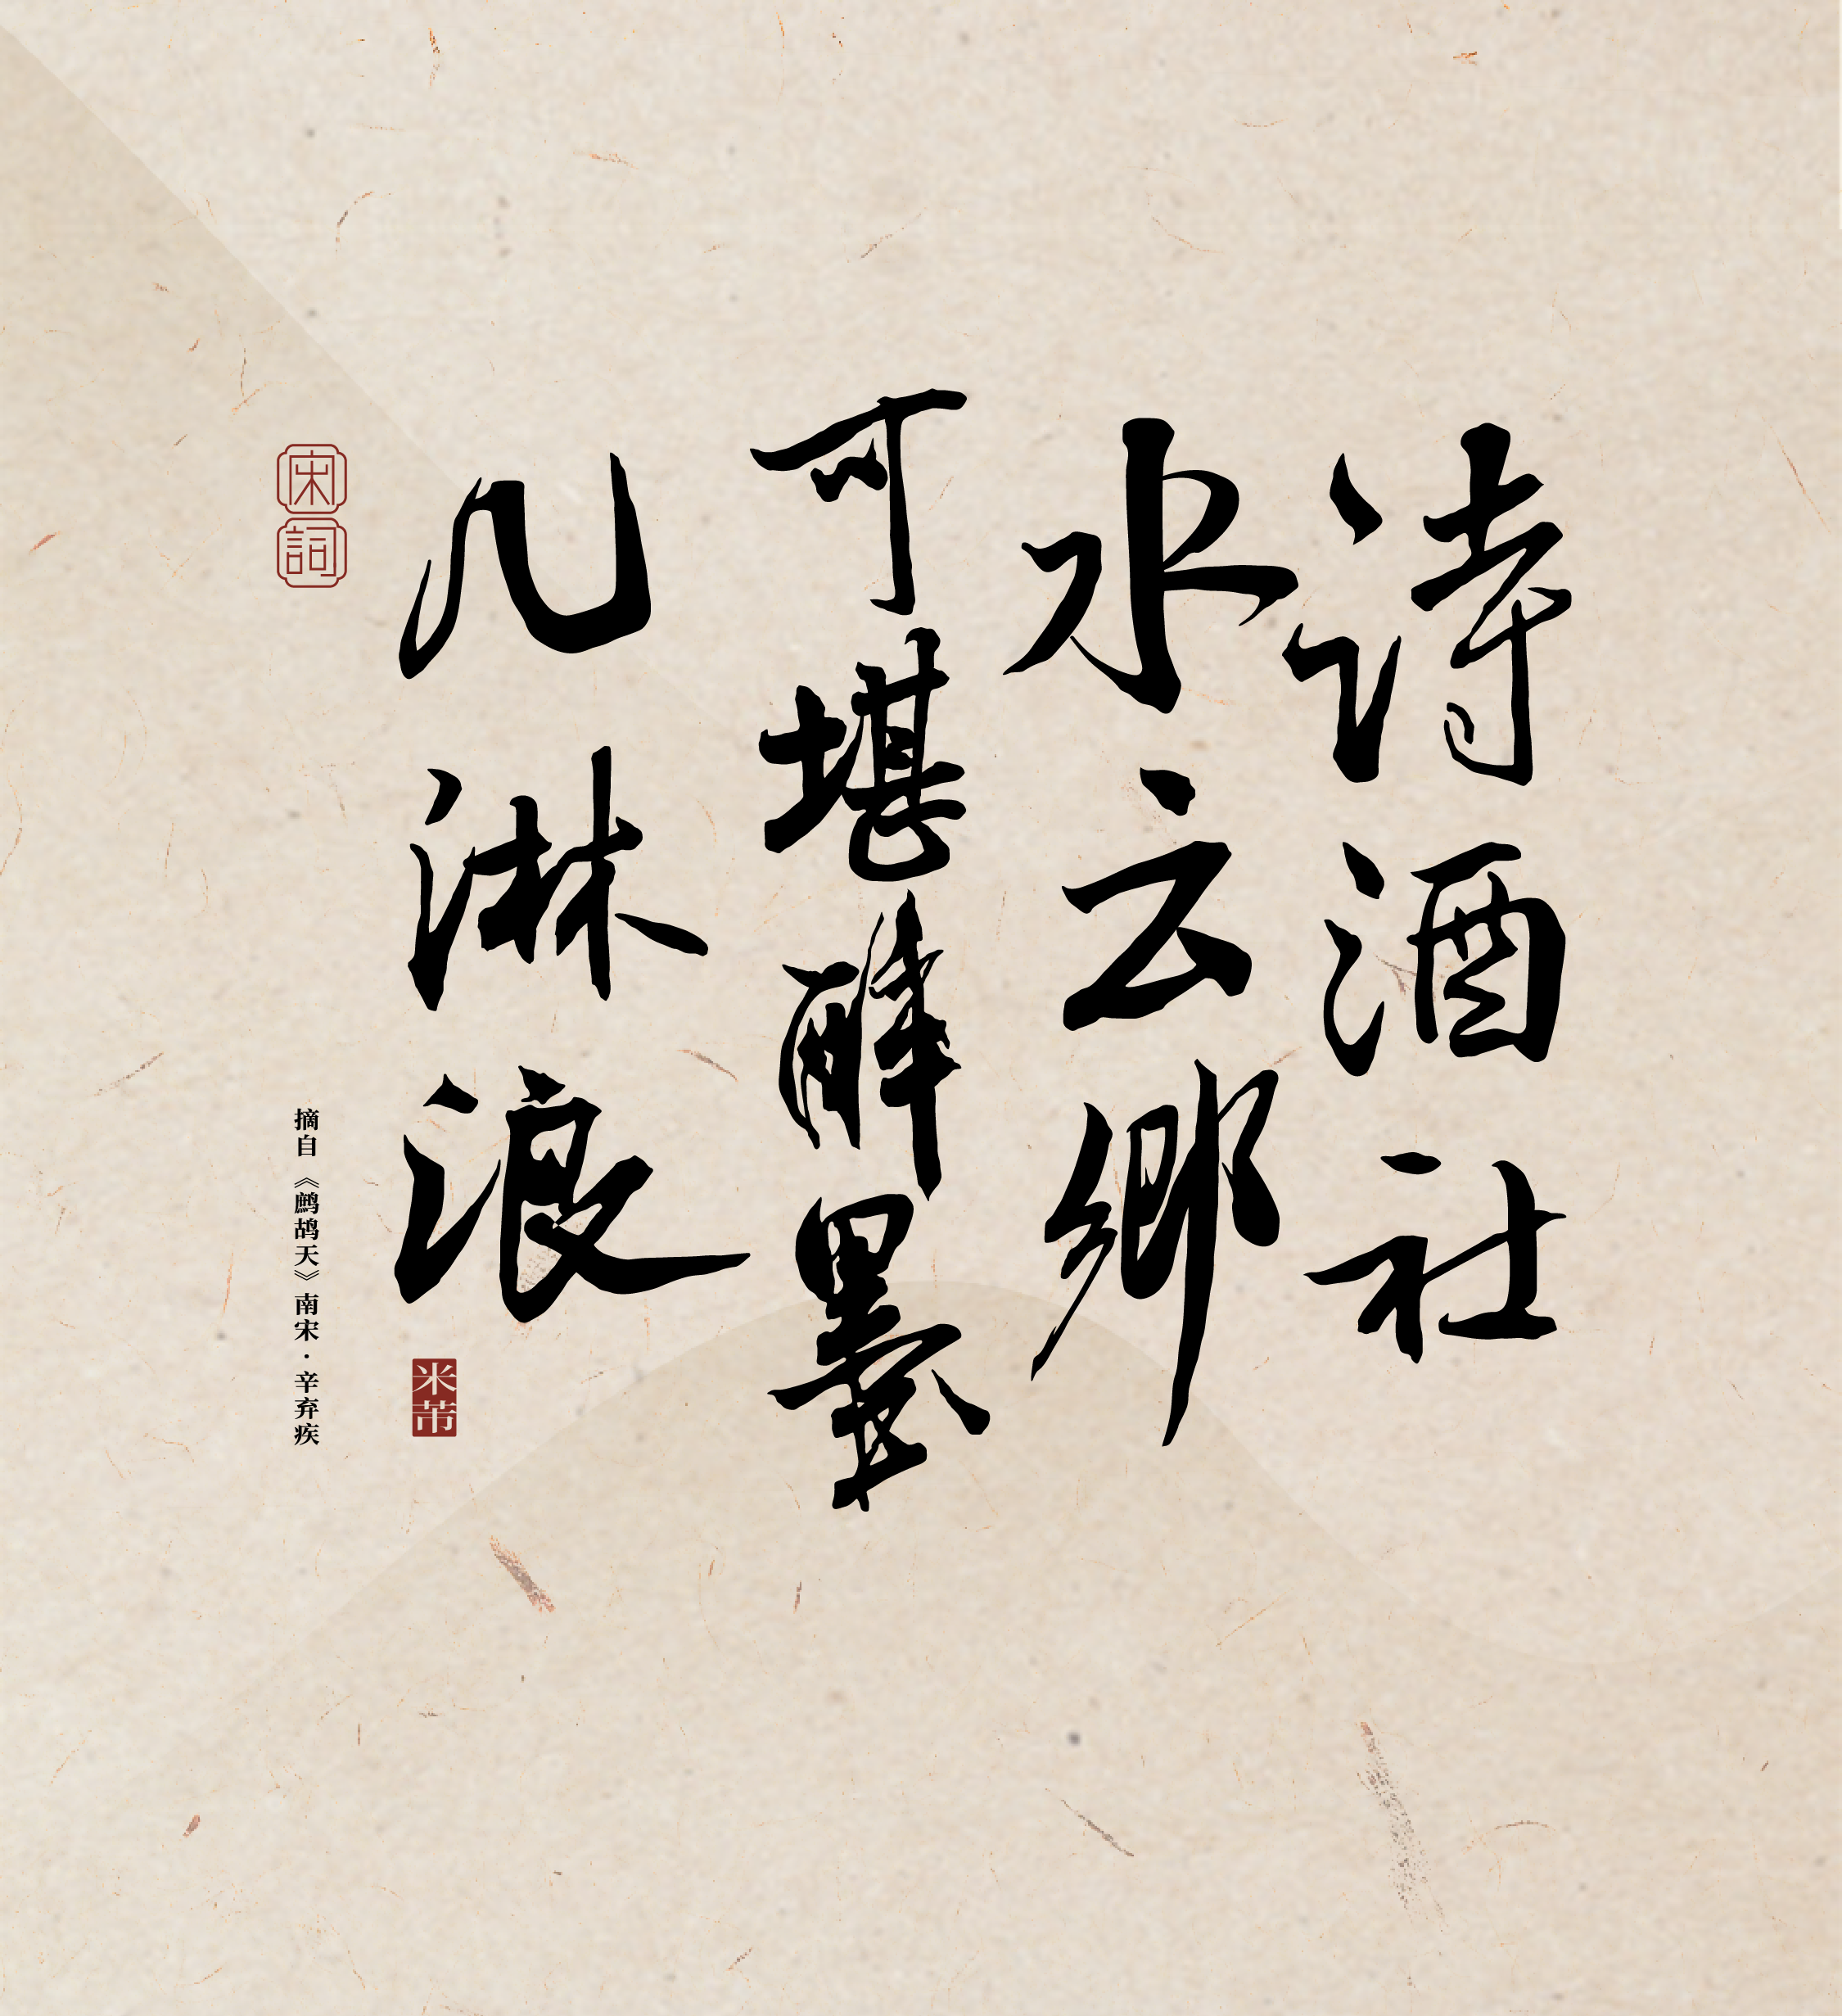 詩酒社
水云鄉
可堪醉墨
几淋浪
宋詞
摘自《鹧鸪天》南宋·辛弃疾
米芾